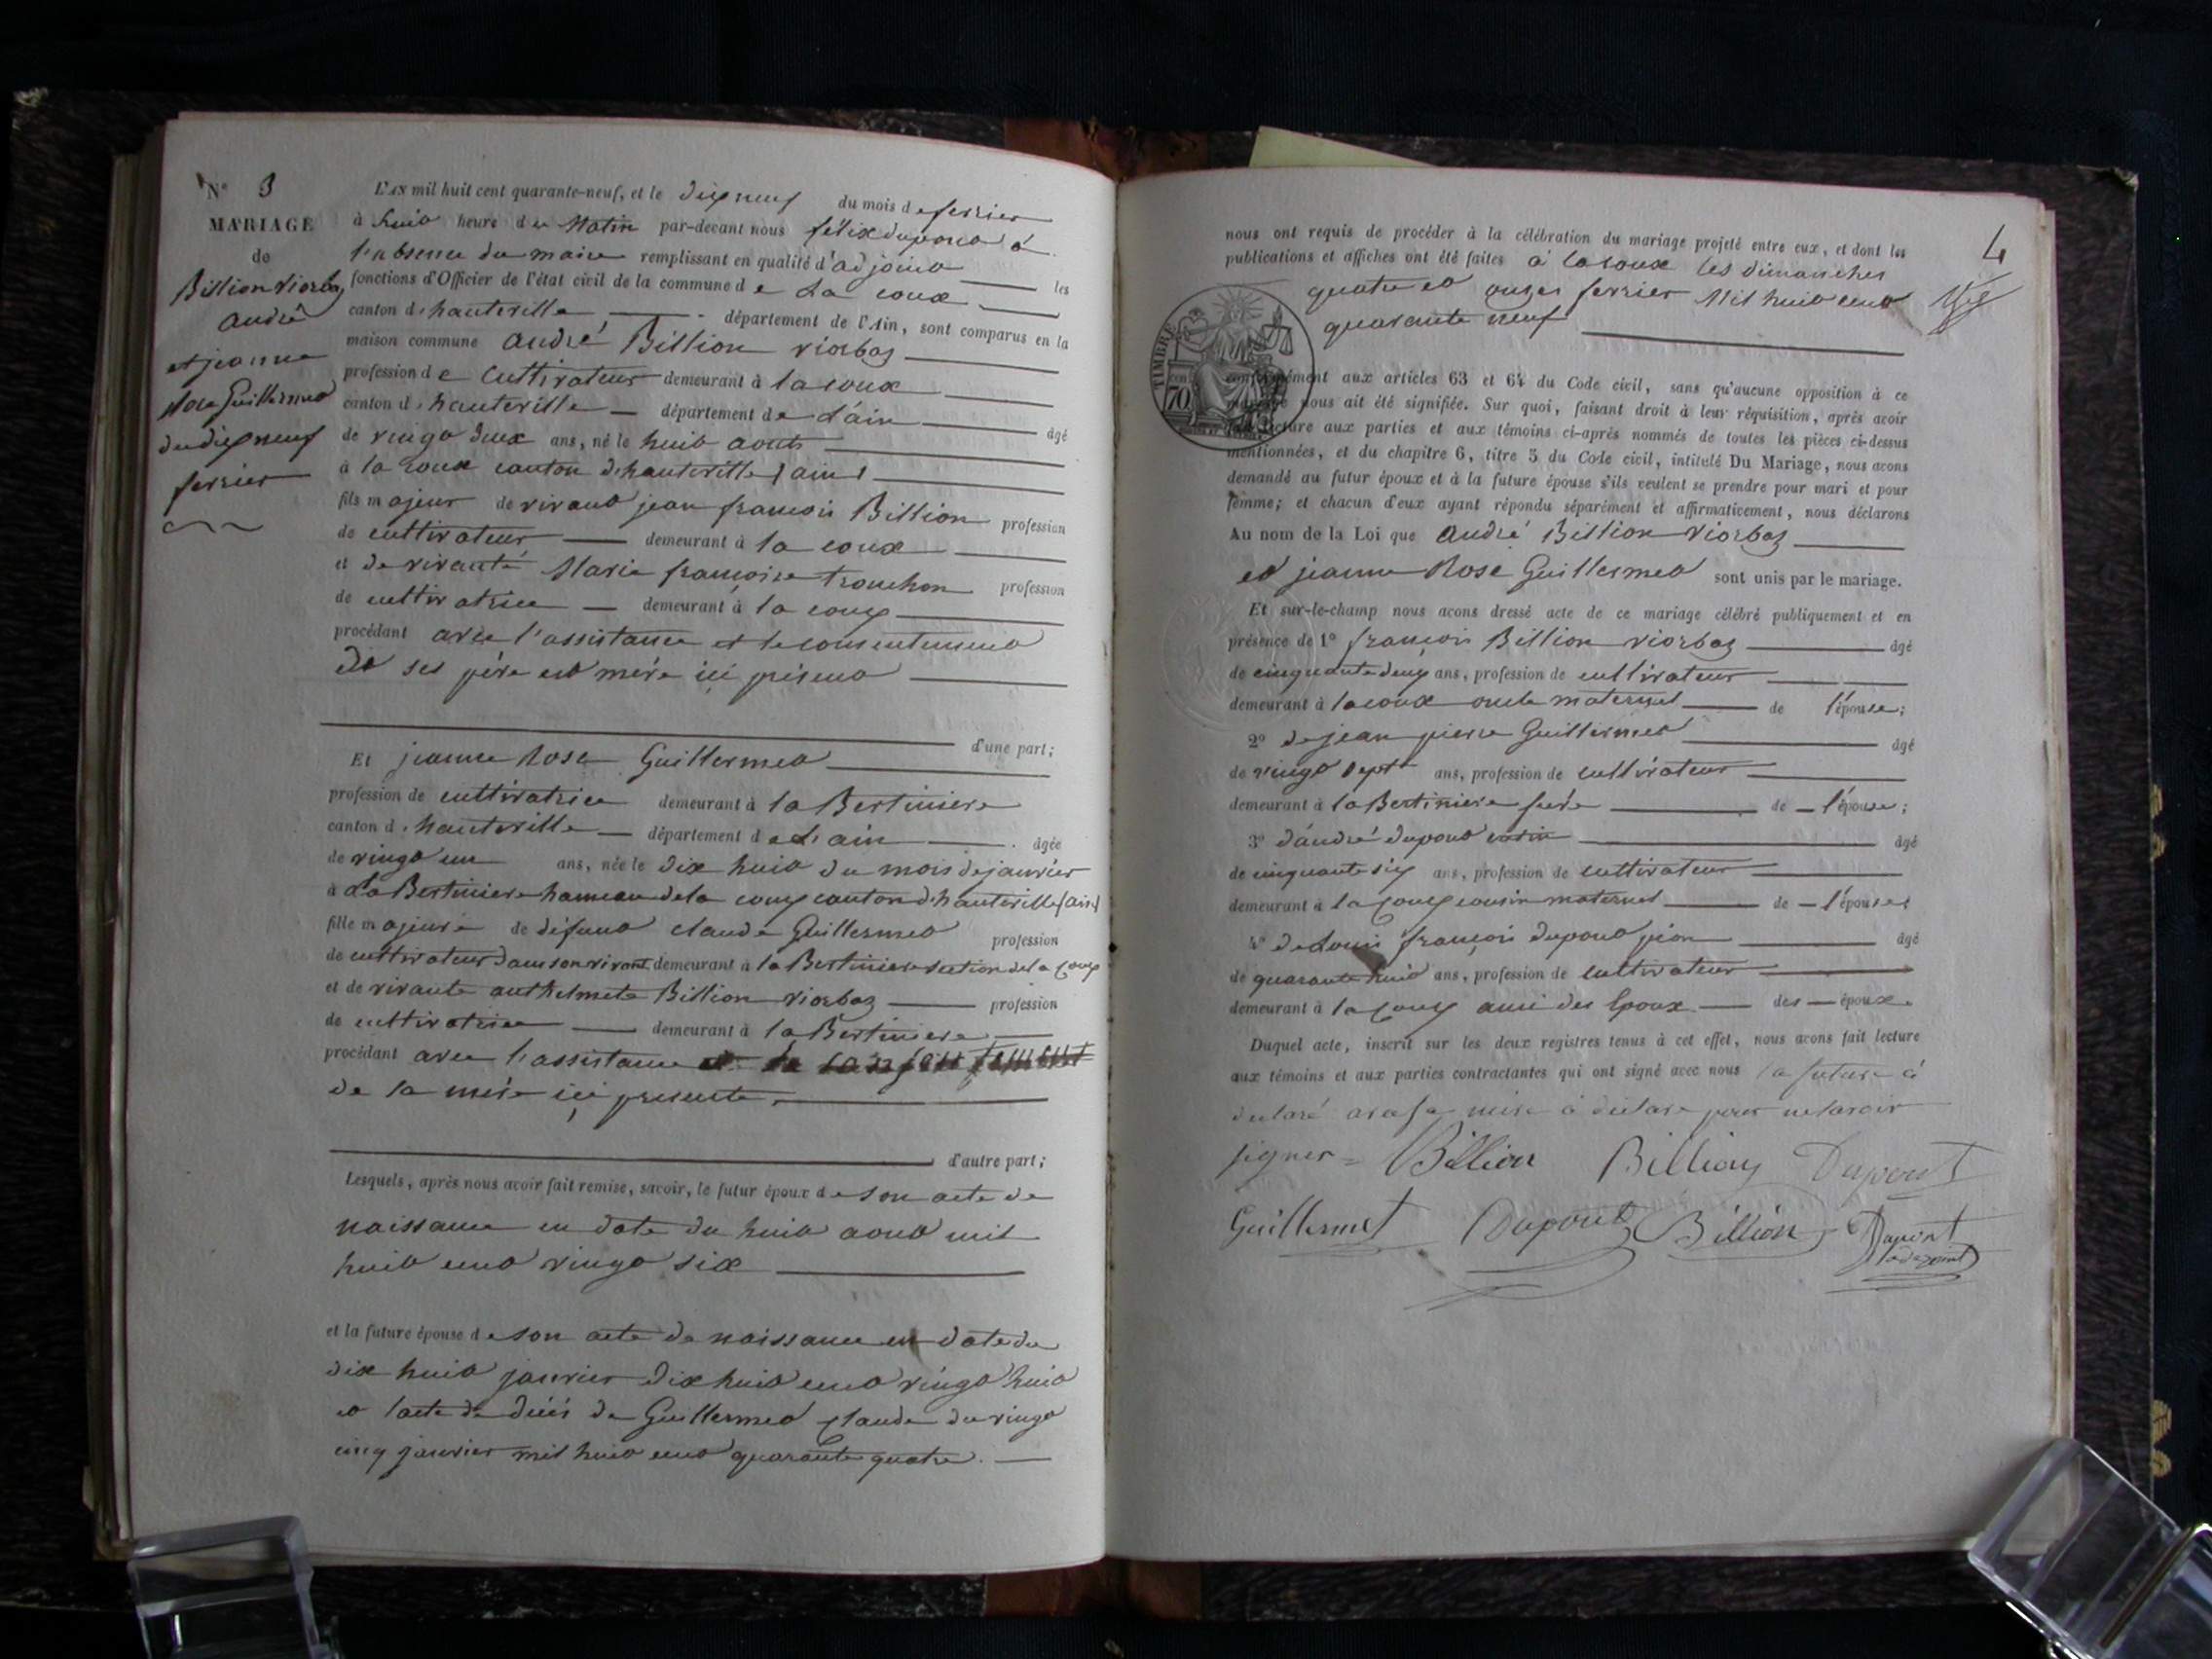 N° 3
MARIAGE
de
Billion Viorbaz
André
et jeanne
Rose Guillermet
du dix neuf
fevrier
L'AN mil huit cent quarante-neuf, et le dix neuf du mois de fevrier
à huit heure du Matin par-devant nous félix dupont à
l'absence du maire remplissant en qualité d'adjoint les
fonctions d'Officier de l'état civil de la commune de La coux
canton d'hauteville département de l'Ain, sont comparus en la
maison commune André Billion viorbaz
profession de Cultivateur demeurant à la coux
canton d'hauteville département de L'ain âgé
de vingt deux ans, né le huit aout
à la Coux canton d'hauteville (ain)
fils majeur de vivant jean françois Billion profession
de cultivateur demeurant à la coux
et de vivante Marie françoise trouchon profession
de cultivatrice demeurant à la coux
procédant avec l'assistance et le consentement
de ses père et mère ici present
d'une part;
Et jeanne Rose Guillermet
profession de cultivatrice demeurant à la Bertiniere
canton d'hauteville département de L'ain âgée
de vingt un ans, née le dix huit du mois de janvier
à La Bertiniere hameau de la coux canton d'hauteville (ain)
fille majeure de défunt claude Guillermet profession
de cultivateur dans son vivant demeurant à la Bertiniere section de la Coux
et de vivante anthelmete Billion viorbaz profession
de cultivatrice demeurant à la Bertiniere
procédant avec l'assistance
de la mère ici presente,
d'autre part;
Lesquels, après nous avoir fait remise, savoir, le futur époux de son acte de
naissance en date du huit aout mil
huit cent vingt six
et la future épouse de son acte de naissance en date du
dix huit janvier dix huit cent vingt huit
et l'acte de décés de Guillermet claude du vingt
cinq janvier mil huit cent quarante quatre.
4
nous ont requis de procéder à la célébration du mariage projeté entre eux, et dont les
publications et affiches ont été faites à la coux les dimanches
quatre et onzes fevrier Mil huit cent
quarante neuf
TIMBRE
70
conformément aux articles 63 et 64 du Code civil, sans qu'aucune opposition à ce
mariage nous ait été signifiée. Sur quoi, faisant droit à leur réquisition, après avoir
fait lecture aux parties et aux témoins ci-après nommés de toutes les pièces ci-dessus
mentionnées, et du chapitre 6, titre 5 du Code civil, intitulé Du Mariage, nous avons
demandé au futur époux et à la future épouse s'ils veulent se prendre pour mari et pour
femme; et chacun d'eux ayant répondu séparément et affirmativement, nous déclarons
Au nom de la Loi que André Billion Viorbaz
et jeanne Rose Guillermet sont unis par le mariage.
Et sur-le-champ nous avons dressé acte de ce mariage célébré publiquement et en
présence de 1° françois Billion viorbaz âgé
de cinquante deux ans, profession de cultivateur
demeurant à la coux oncle maternel de l'épouse;
2° de jean pierre Guillermet âgé
de vingt sept ans, profession de cultivateur
demeurant à la Bertiniere frère de l'épouse;
3° d'andré dupont âgé
de cinquante six ans, profession de cultivateur
demeurant à la Coux cousin maternel de l'épouse
4° de Louis françois dupont pion âgé
de quarante huit ans, profession de cultivateur
demeurant à la Coux ami des Epoux des époux.
Duquel acte, inscrit sur les deux registres tenus à cet effet, nous avons fait lecture
aux témoins et aux parties contractantes qui ont signé avec nous la future à
declaré mère à declare pour ne savoir
signer = Billion Billion Dupont
Guillermet Dupont Billion Dupont
adjoint